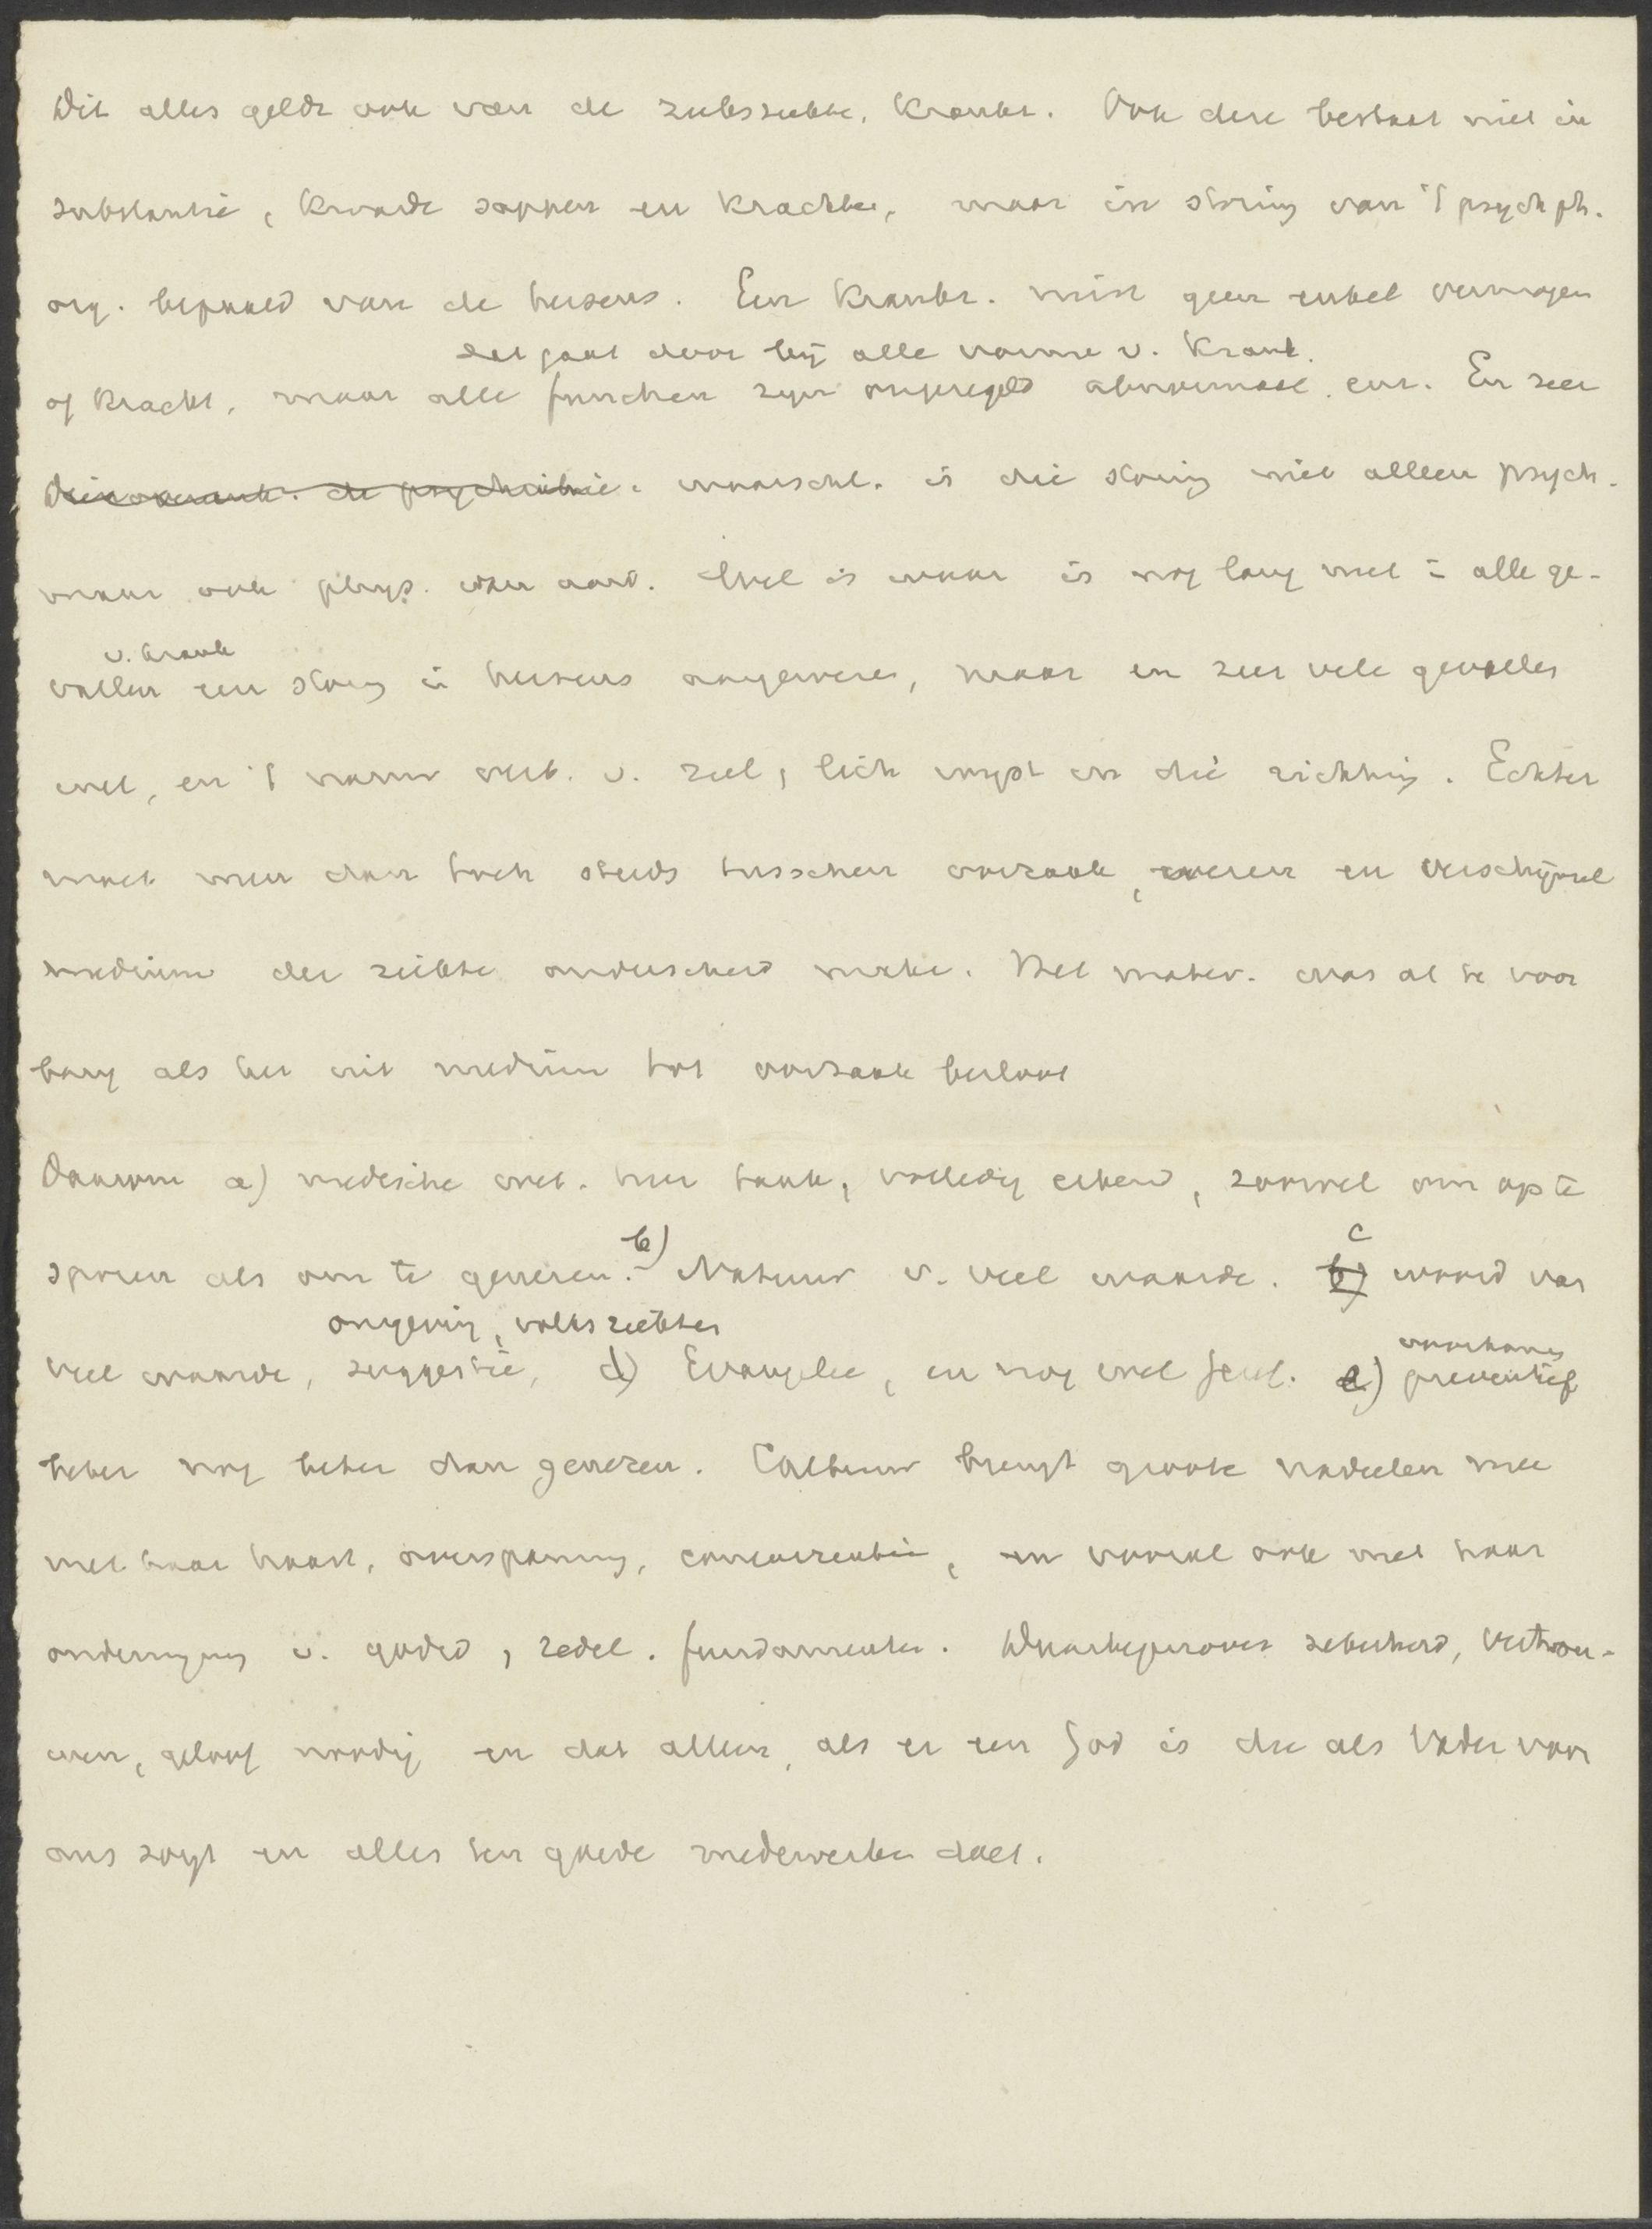 Dit alles geldt ook van de zielsziekte, krankz. Ook deze bestaat niet in
substantie, kwade sappen en krachten, maar in storing van 't psych ph.
org. bepaald van de hersens. Een krankz. mist geen enkel vermogen
dat gaat door bij alle vorme v. krank.
of kracht, maar alle functien zijn ongeregeld abnormaal. en zeer
waarschl. is die storing niet alleen psych.
maar ook phys. van aard. Wel is waar is nog lang niet in alle ge-
v. krank
vallen een storing in hersens aangewezen, maar in zeer vele gevallen
wel, en 't nauw verb. v. ziel, lich wijst in die richting. Echter
moet men dan toch steeds tusschen oorzaak, wezen en verschijnsel
medium der ziekte onderscheid maken. Het mater. was al te voor
barig als het uit medium tot oorzaak besloot
Daarom a) medische wet. hier taak, volledig erkend, zoowel om op te
sporen als om te genezen. b) Natuur v. veel waarde. c woord van
omgeving, volksziekten
veel waarde, suggestie, d) Evangelie, en nog veel e) preventief
beter nog beter dan genezen. Cultuur brengt groote nadeelen mee
met haar haast, overspanning, concurrentie, en vooral ook met haar
ondermijning v. godsd, zedel. fundamenten. Daartegenover zekerheid, vertrou-
wen, geloof noodig en dat alleen, als er een God is die als Vader voor
ons zorgt en alles ten goede medewerken doet.